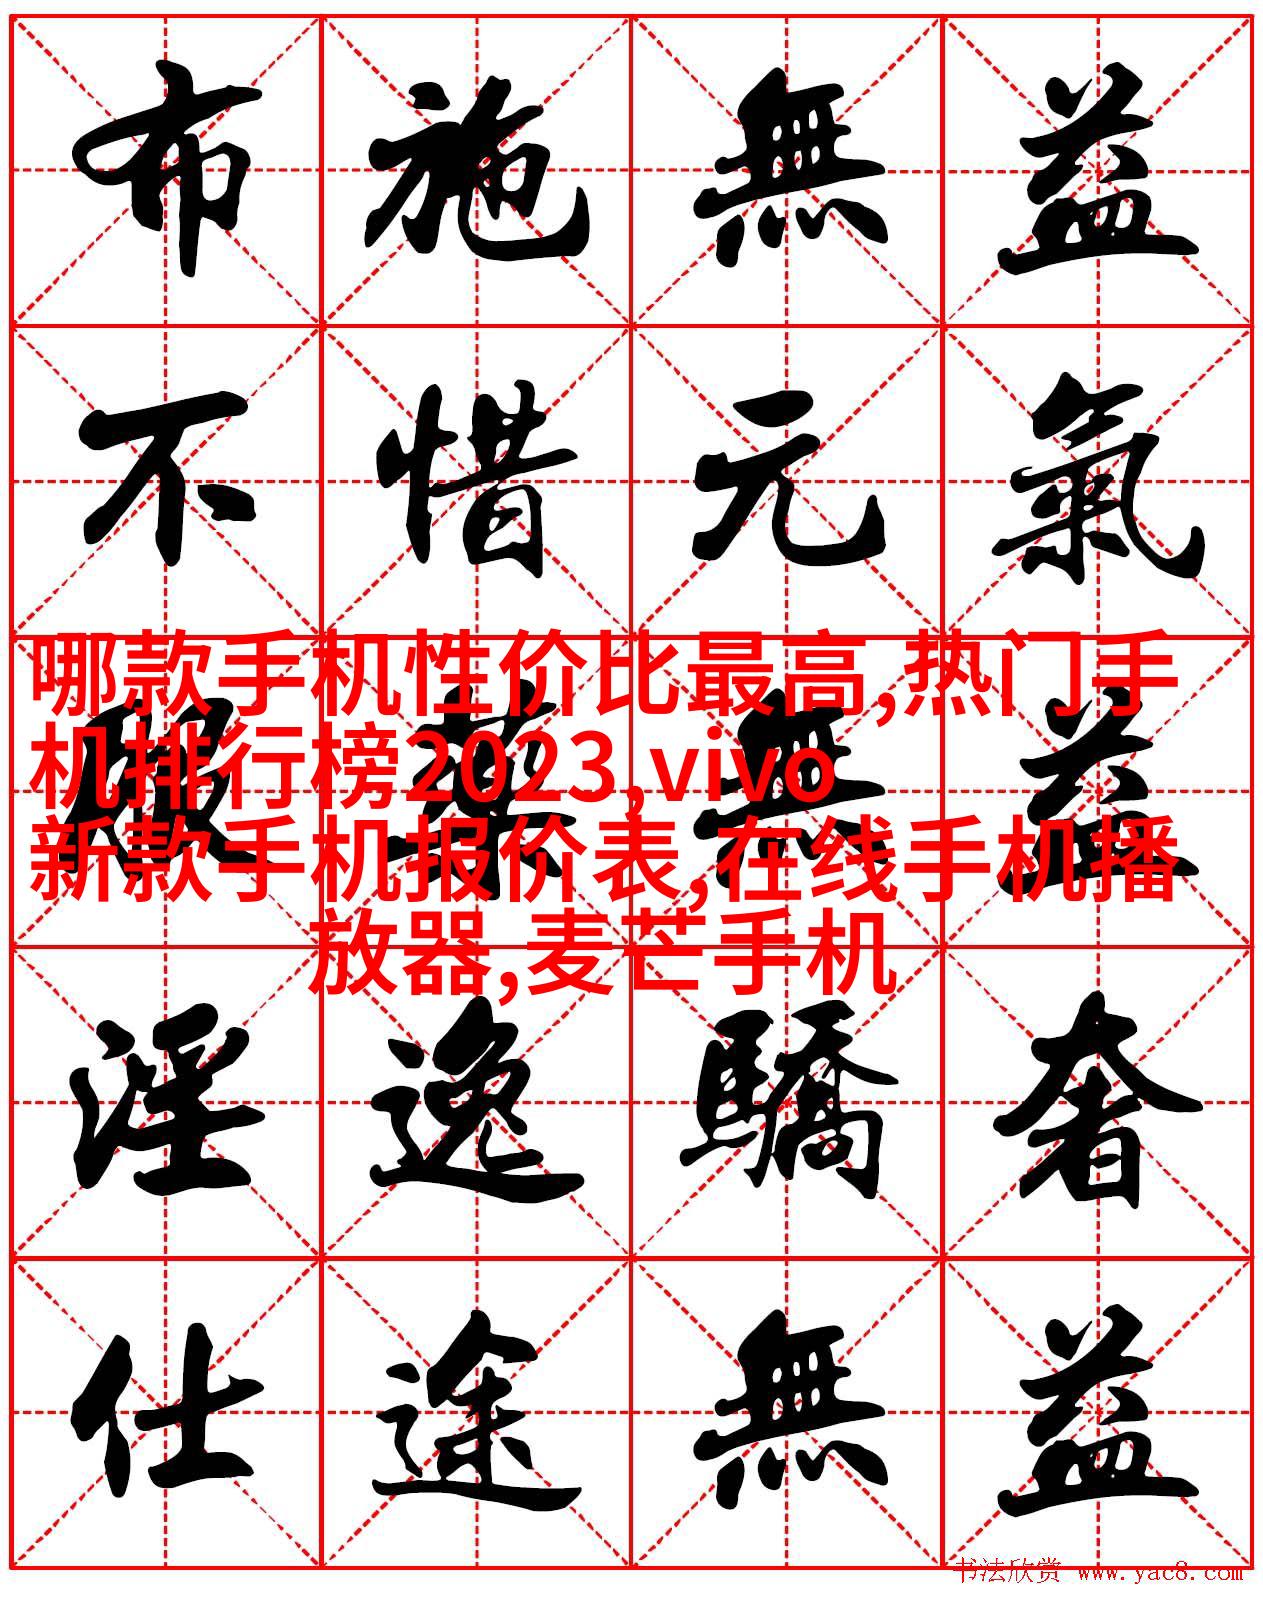 布施無益
不惜元氣
服藥無益
哪款手机性价比最高,热门手
机排行榜2023,vivo
新款手机报价表,在线手机播
放器,麦芒手机
淫逸驕奢
仕途無益
书法欣赏 www.yac8.com